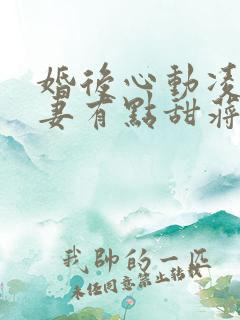 婚後心動凌
妻有點甜蔣
我帥的一匹
未經同意禁止轉載